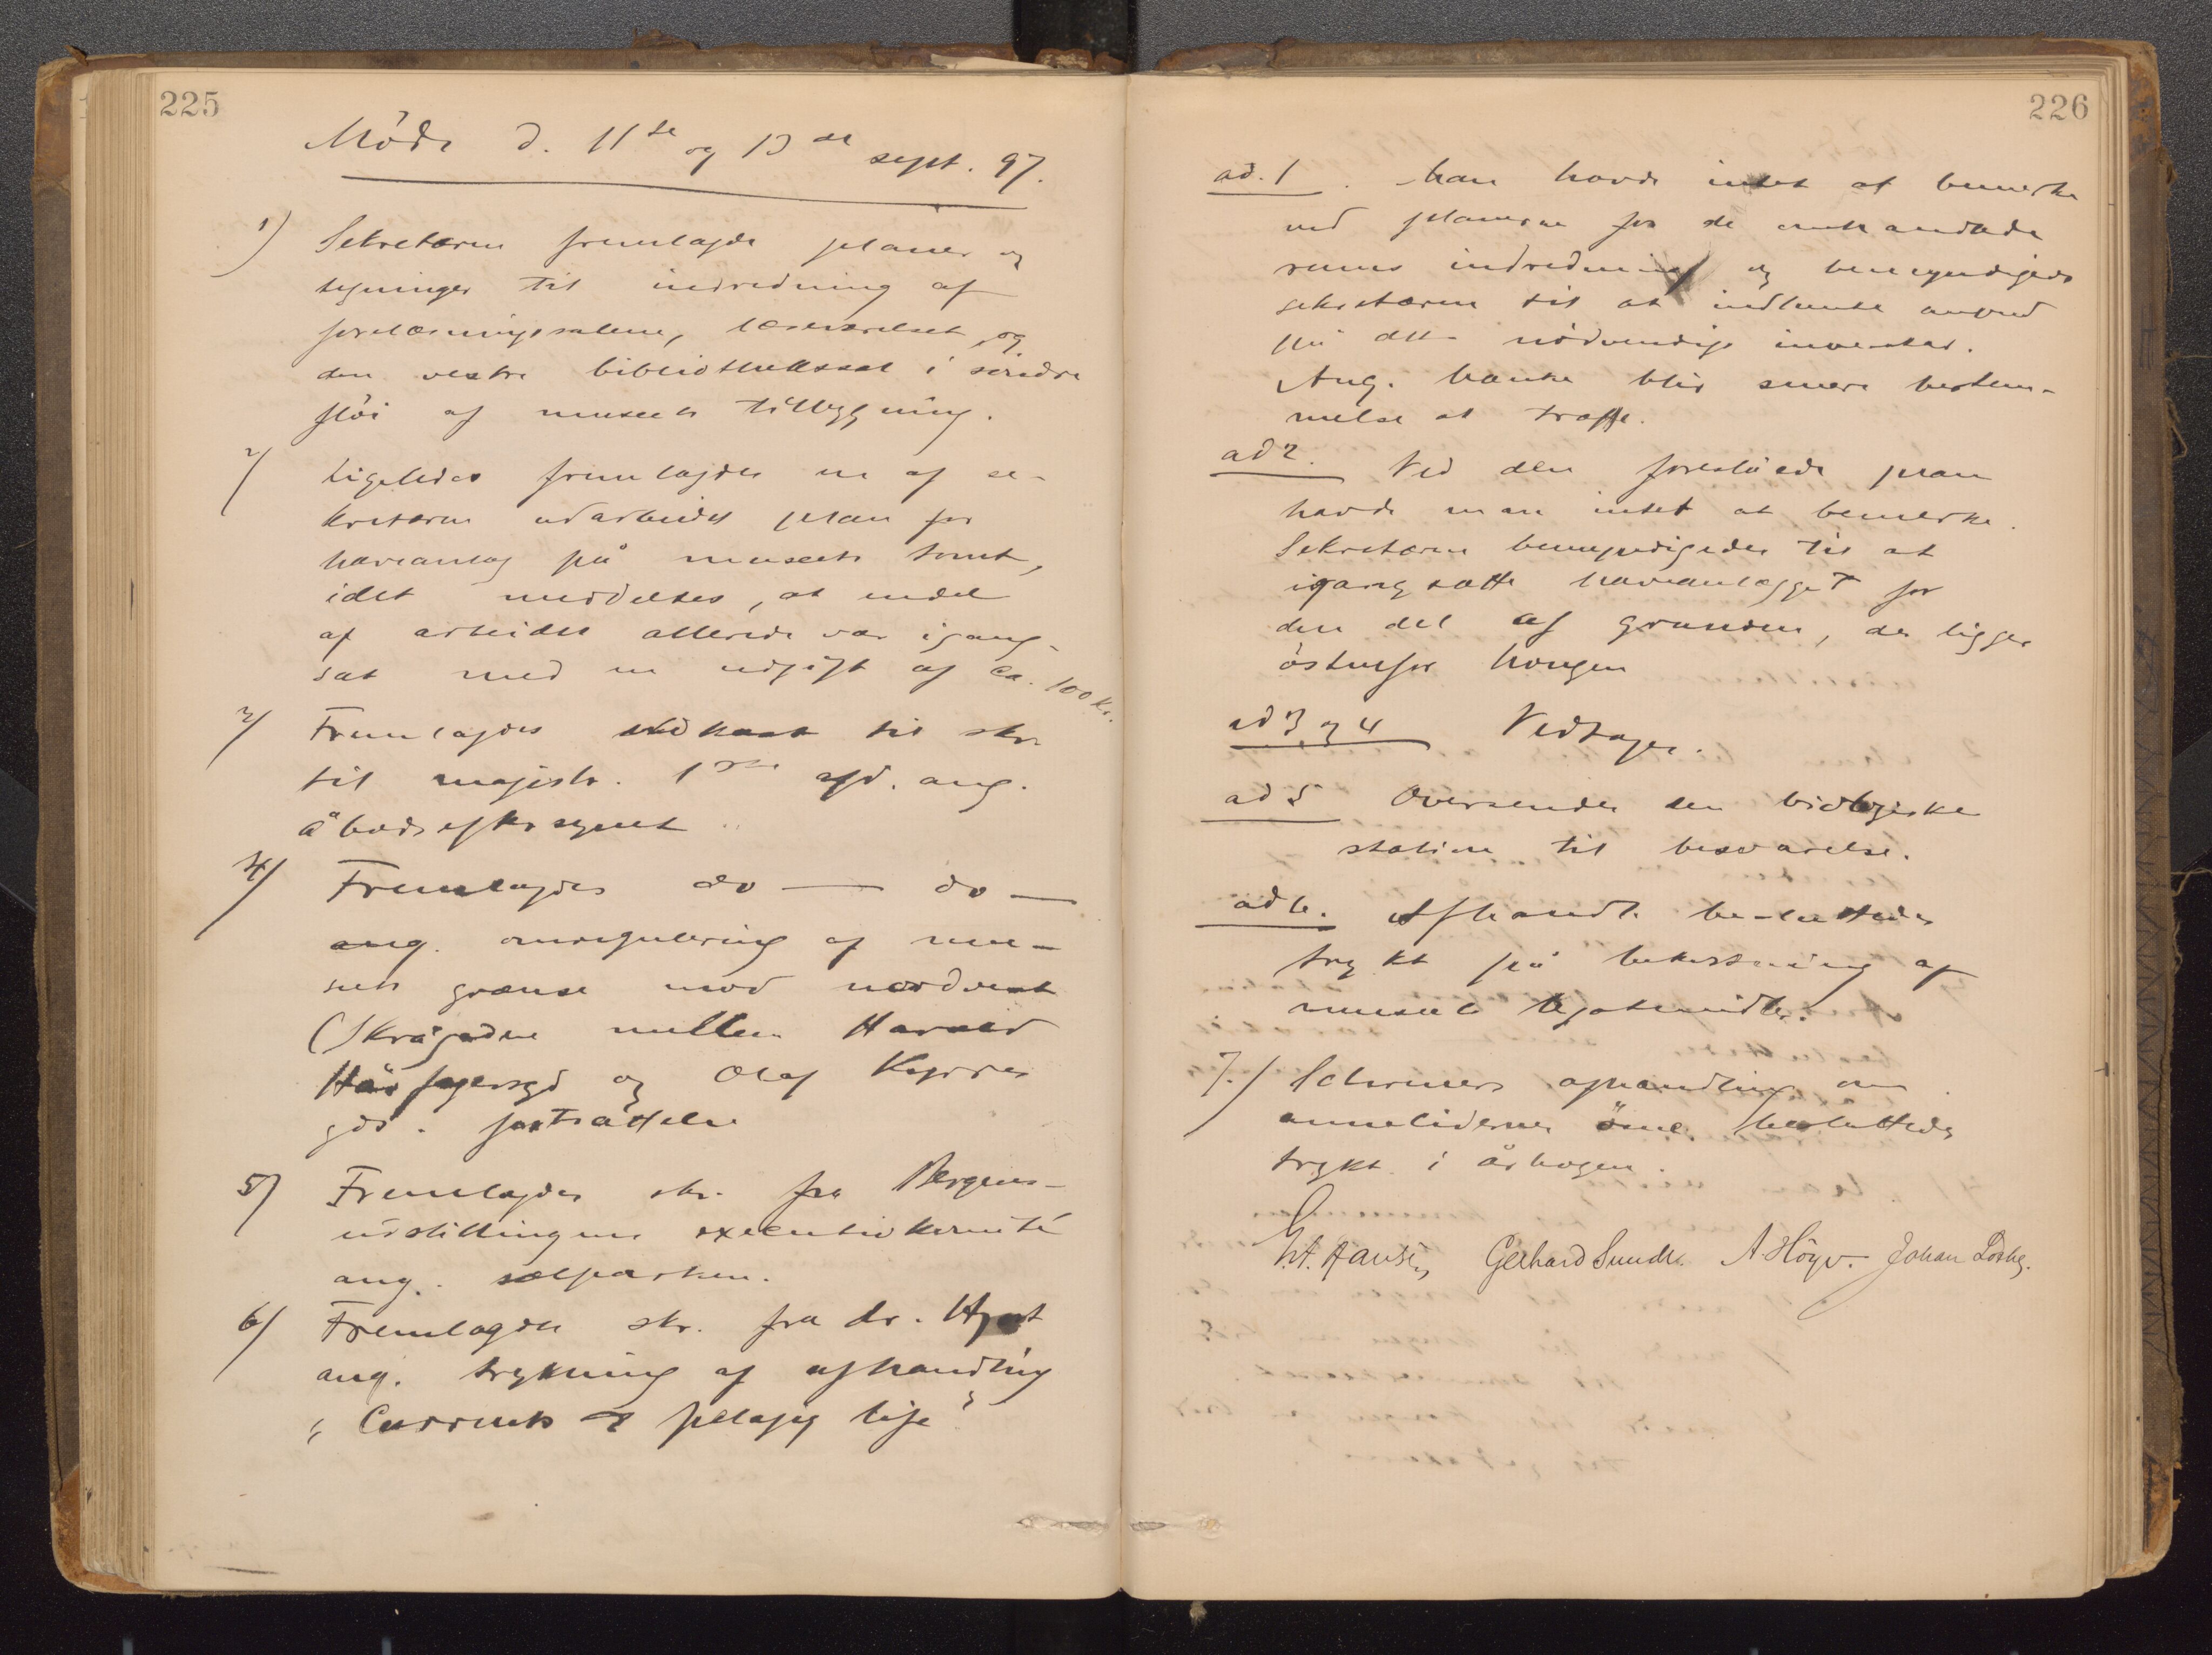 225
Möde d. 11te og 13de sept. 97.
1) Sekretæren fremlagde planer og
tegninger til indredning af
forelæsningssalene, læseværelset og
den vestre bibliotheksal i söndre
flöi af museets tilbygning.
2) Ligeledes fremlagdes en af se-
kretæren udarbeidet plan for
haveanlæg på museets tomt,
idet meddeltes, at endel
af arbeidet allerede var igang-
sat med en udgift af ca. 100 kr.
3) Fremlagdes udkast til skr.
til magistr. 1ste afd. ang.
åbodsefkersynet
4) Fremlagdes do — do —
ang. omregulering af mu-
seets grænse mod nordvest
(Skrågaden mellem Harald
Hårfagersgd og Olaf Kyrres
gd. fortrættelse
5) Fremlagdes skr. fra Bergens-
udstillingens executivkomité
ang. sælparken.
6) Fremlagdes skr. fra dr. Hjort
ang. trykning af afhandling
„Currents & pelagig life"
226
ad. 1. Man havde intet at bemerke
ved planerne for de omhandlede
rums indredning og bemyndigede
sekretæren til at indhente anbud
på det nödvendige inventar.
Ang. bænke blir senere bestem-
melse at træffe.
ad 2. Ved den foreslåede plan
havde man intet at bemerke.
Sekretæren bemyndigedes til at
igangsætte haveanlægget for
den del af grunden, der ligger
östenfor haugen
ad 3 og 4 Vedtages.
ad 5 Oversendes den biologiske
station til besvarelse.
ad 6. Afhandl. besluttedes
trykt på bekostning af
museets legatmidler.
7.) Schreiners afhandling om
annelidernes öine besluttedes
trykt i årbogen.
G. A. Hansen Gerhard Sundt. Johan